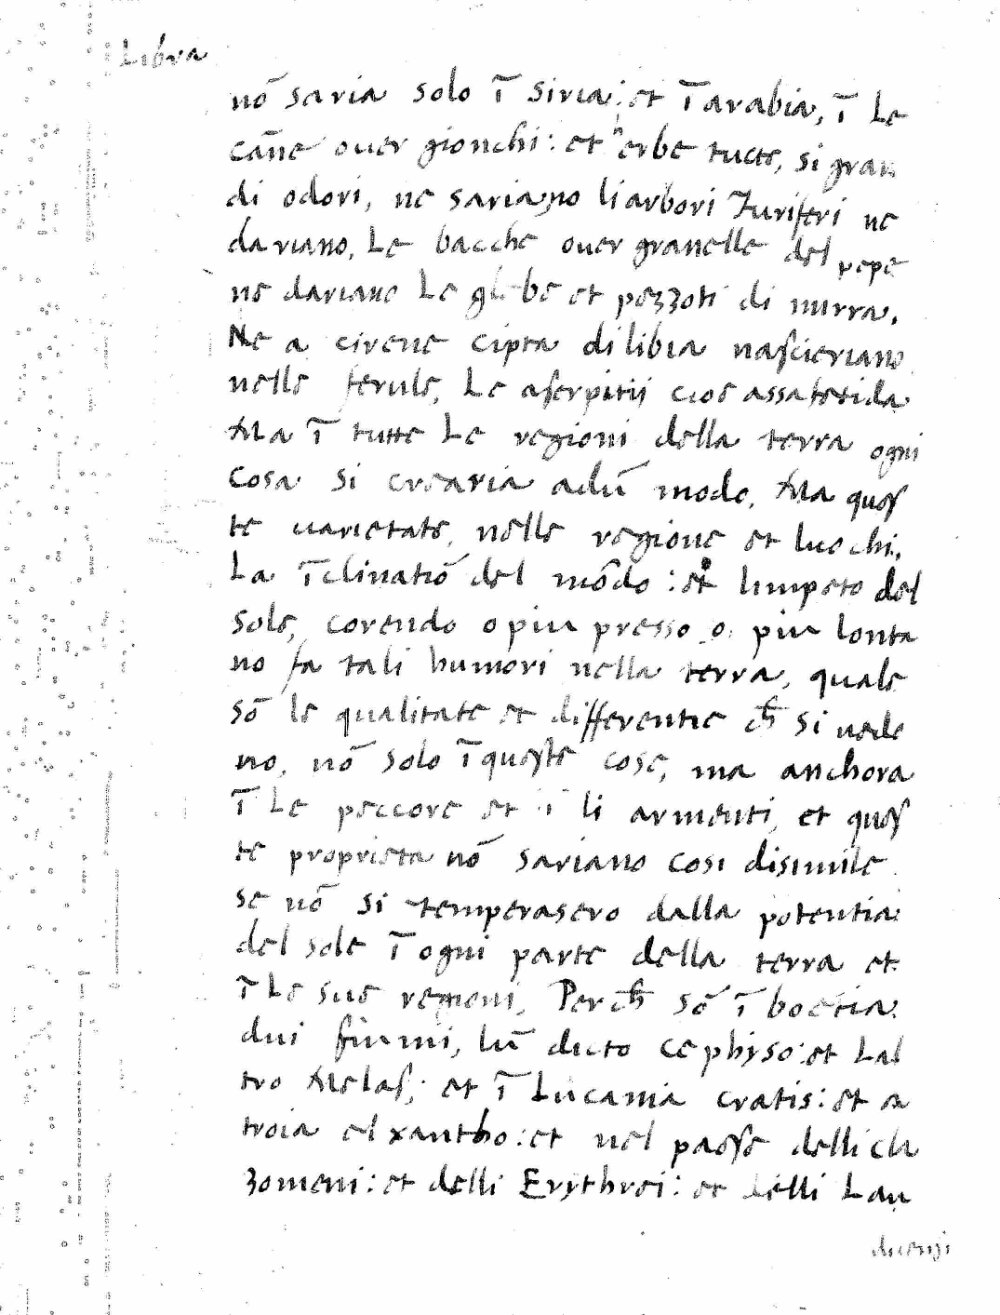 Libra
nō saria solo ī siria: et ī arabia, ī le
cañe ouer gionchi: et n̄ erbe tucte, si gran
di odori, ne sariano li arbori Turiferi ne
dariano, Le bacche ouer granelle del pepe
ne dariano le glebe et pezzoti di mirra.
Ne a cirene cipta di libia nascieriano
nelle ferule, Le aserpitij cioe assafetida
Ma ī tutte Le regioni della terra ogni
cosa si crearia adū modo, Ma ques
te uarietate, nelle regione et luochi,
La īclinatiō del mōdo: et limpeto del
sole, corendo o piu presso o piu lonta
no fa tali humori nella terra, quale
sō le qualitate et differentie ch̄ si uede
no, nō solo ī queste cose, ma anchora
ī Le peccore et ī li armenti, et ques
te proprieta nō sariano cosi disimile
se nō si temperasero dalla potentia
del sole ī ogni parte della terra et
ī Le sue regioni, Perch̄ sō ī boetia
dui fiumi, lū dicto cephyso: et Lal
tro Melas; et ī Lucania cratis: et a
troia el xantho: et nel paese delli cla
zomeni: et delli Erythrei: et delli Lau